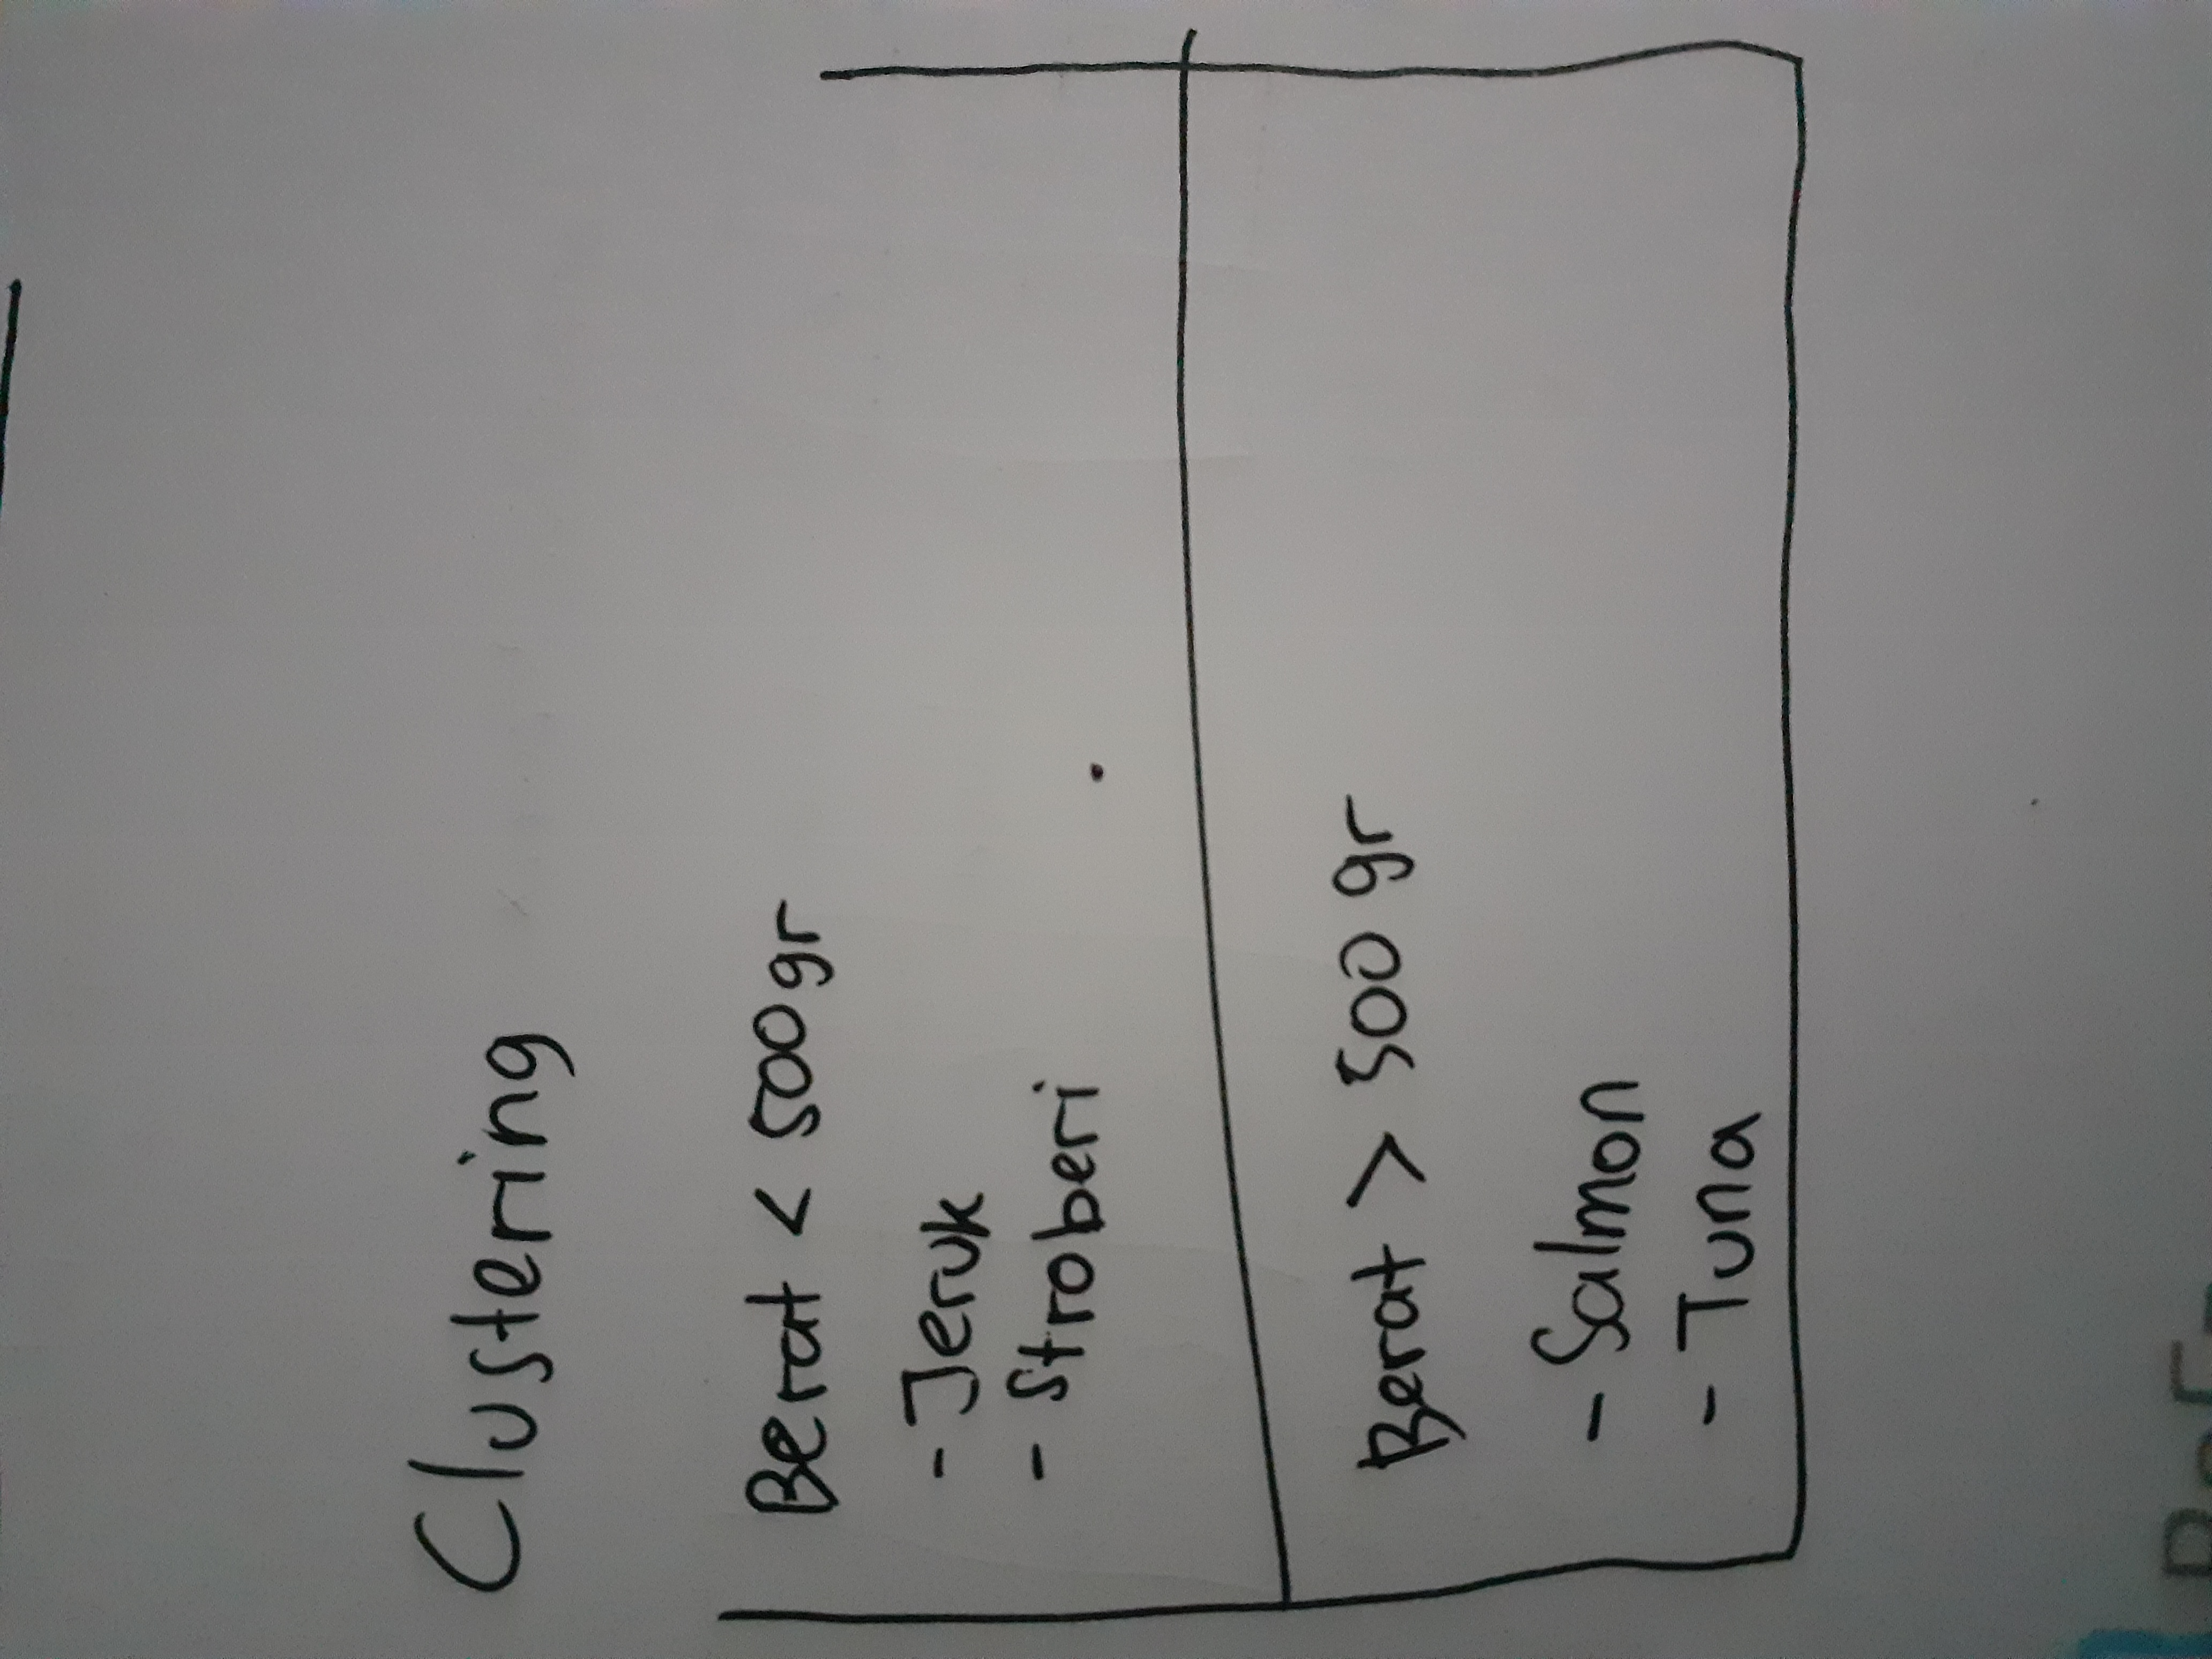 Clustering
Berat < 500 gr
- Jeruk
- Stroberi
Berat > 500 gr
- Salmon
- Tuna